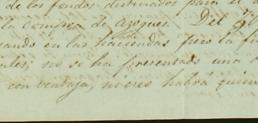 de los fondos destinados para el
la compra de azogues. Del
ando en las haciendas pero la
ales, no se ha presentado una
con ventaja, no creo habrá quien